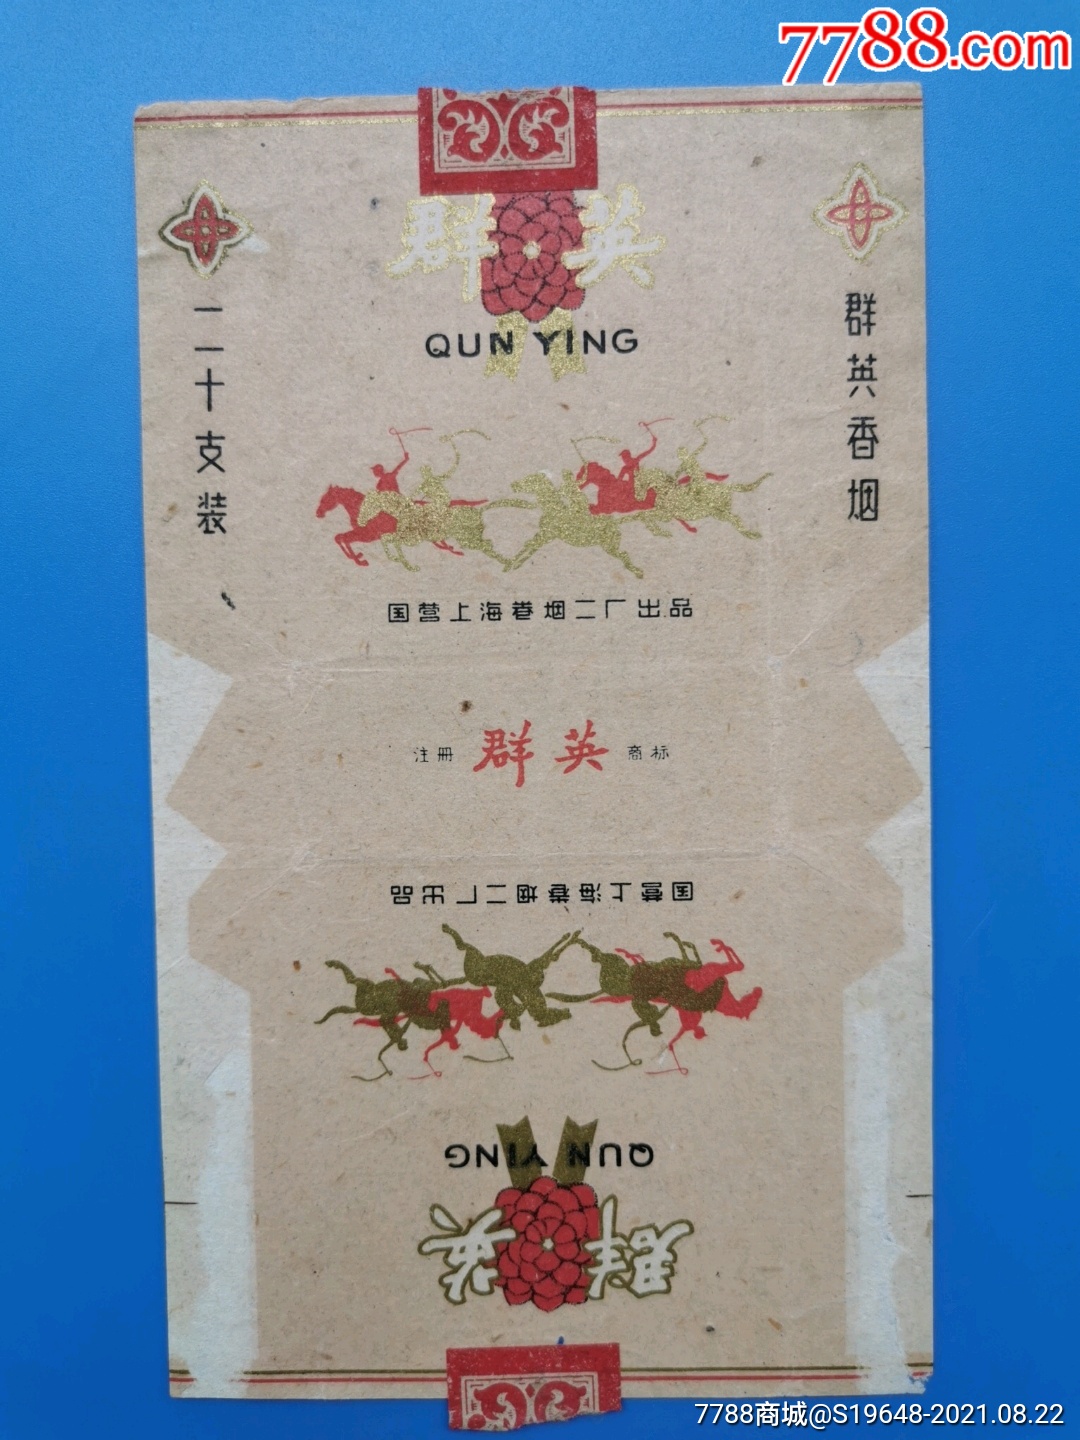 7788.com
群英
QUN YING
二十支装
群英香烟
国营上海卷烟二厂出品
注册 群英 商标
国营上海卷烟二厂出品
QUN YING
群英
7788商城@S19648-2021.08.22